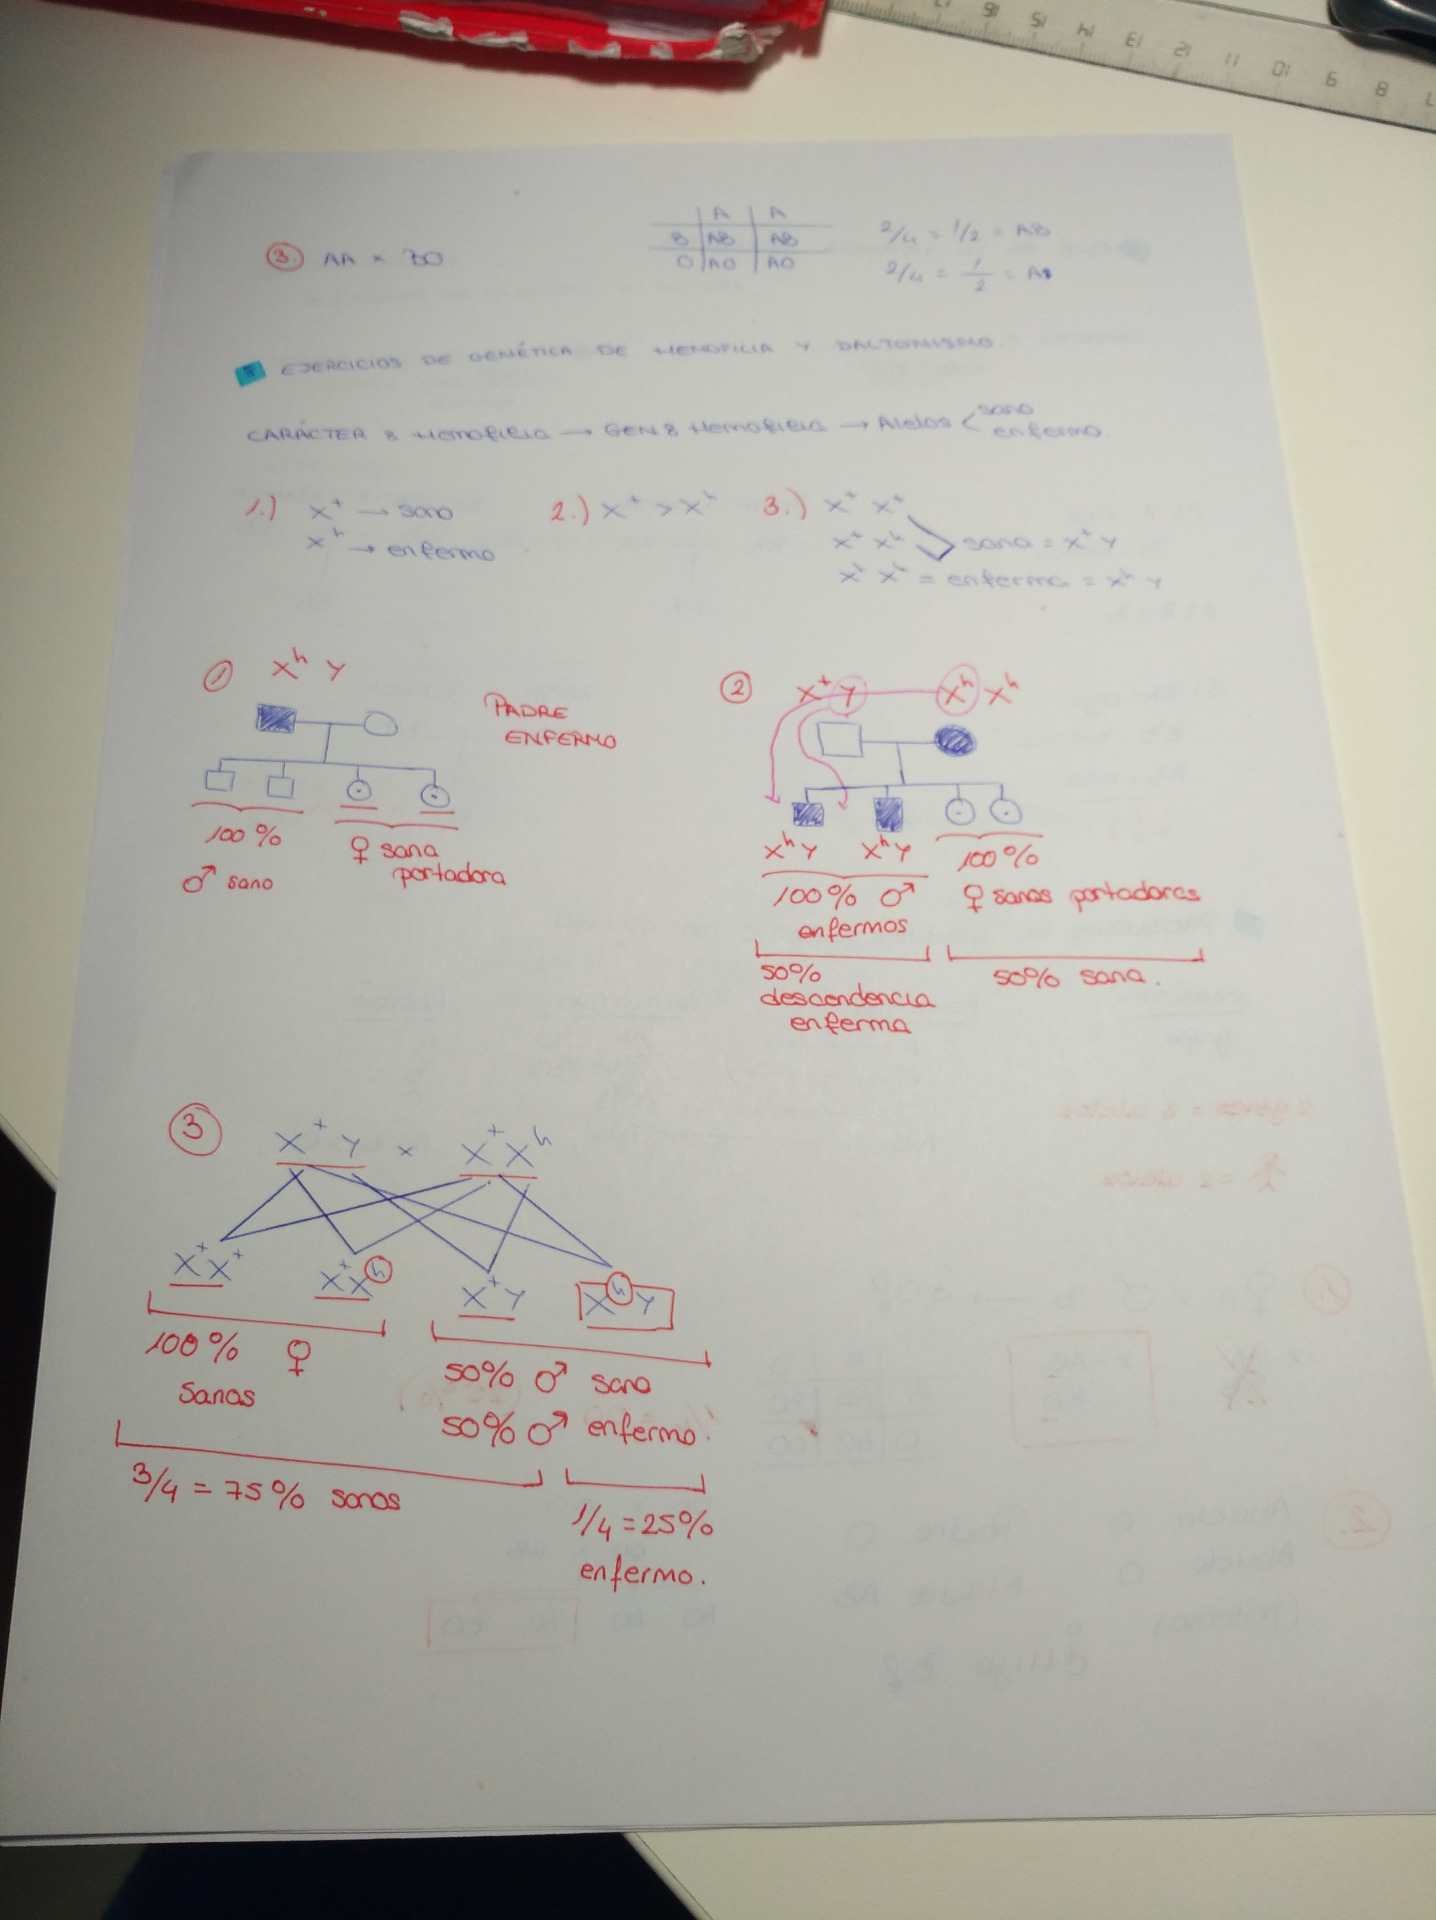 17 16 15 14 13 12 11 10 9 8 7
3. AA × BO
A A
B AB AB
O AO AO
2/4 = 1/2 = AB
2/4 = 1/2 =
EJERCICIOS DE GENÉTICA DE HEMOFILIA Y DALTONISMO
CARÁCTER: Hemofilia → GEN: Hemofilia → Alelos < sano
enfermo
1.) X⁺ → sano
Xʰ → enfermo
2.) X⁺ > Xʰ
3.) X⁺ X⁺
X⁺ Xʰ > sana = X⁺ Y
Xʰ Xʰ = enferma = Xʰ Y
① Xʰ Y
PADRE
ENFERMO
100%
♂ sano
♀ sana
portadora
② X⁺ Y Xʰ Xʰ
XʰY XʰY
100% ♂
enfermos
100%
♀ sanas portadoras
50%
descendencia
enferma
50% sana.
③ X⁺ Y × X⁺ Xʰ
X⁺X⁺ X⁺Xʰ X⁺Y XʰY
100% ♀
Sanas
50% ♂ sano
50% ♂ enfermo.
3/4 = 75% sanos
1/4 = 25%
enfermo.